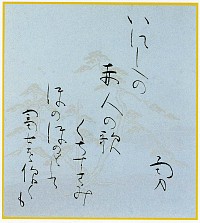 いにしへの
赤人の歌
くちずさみ
ほのぼのとして
富士を仰ぐも